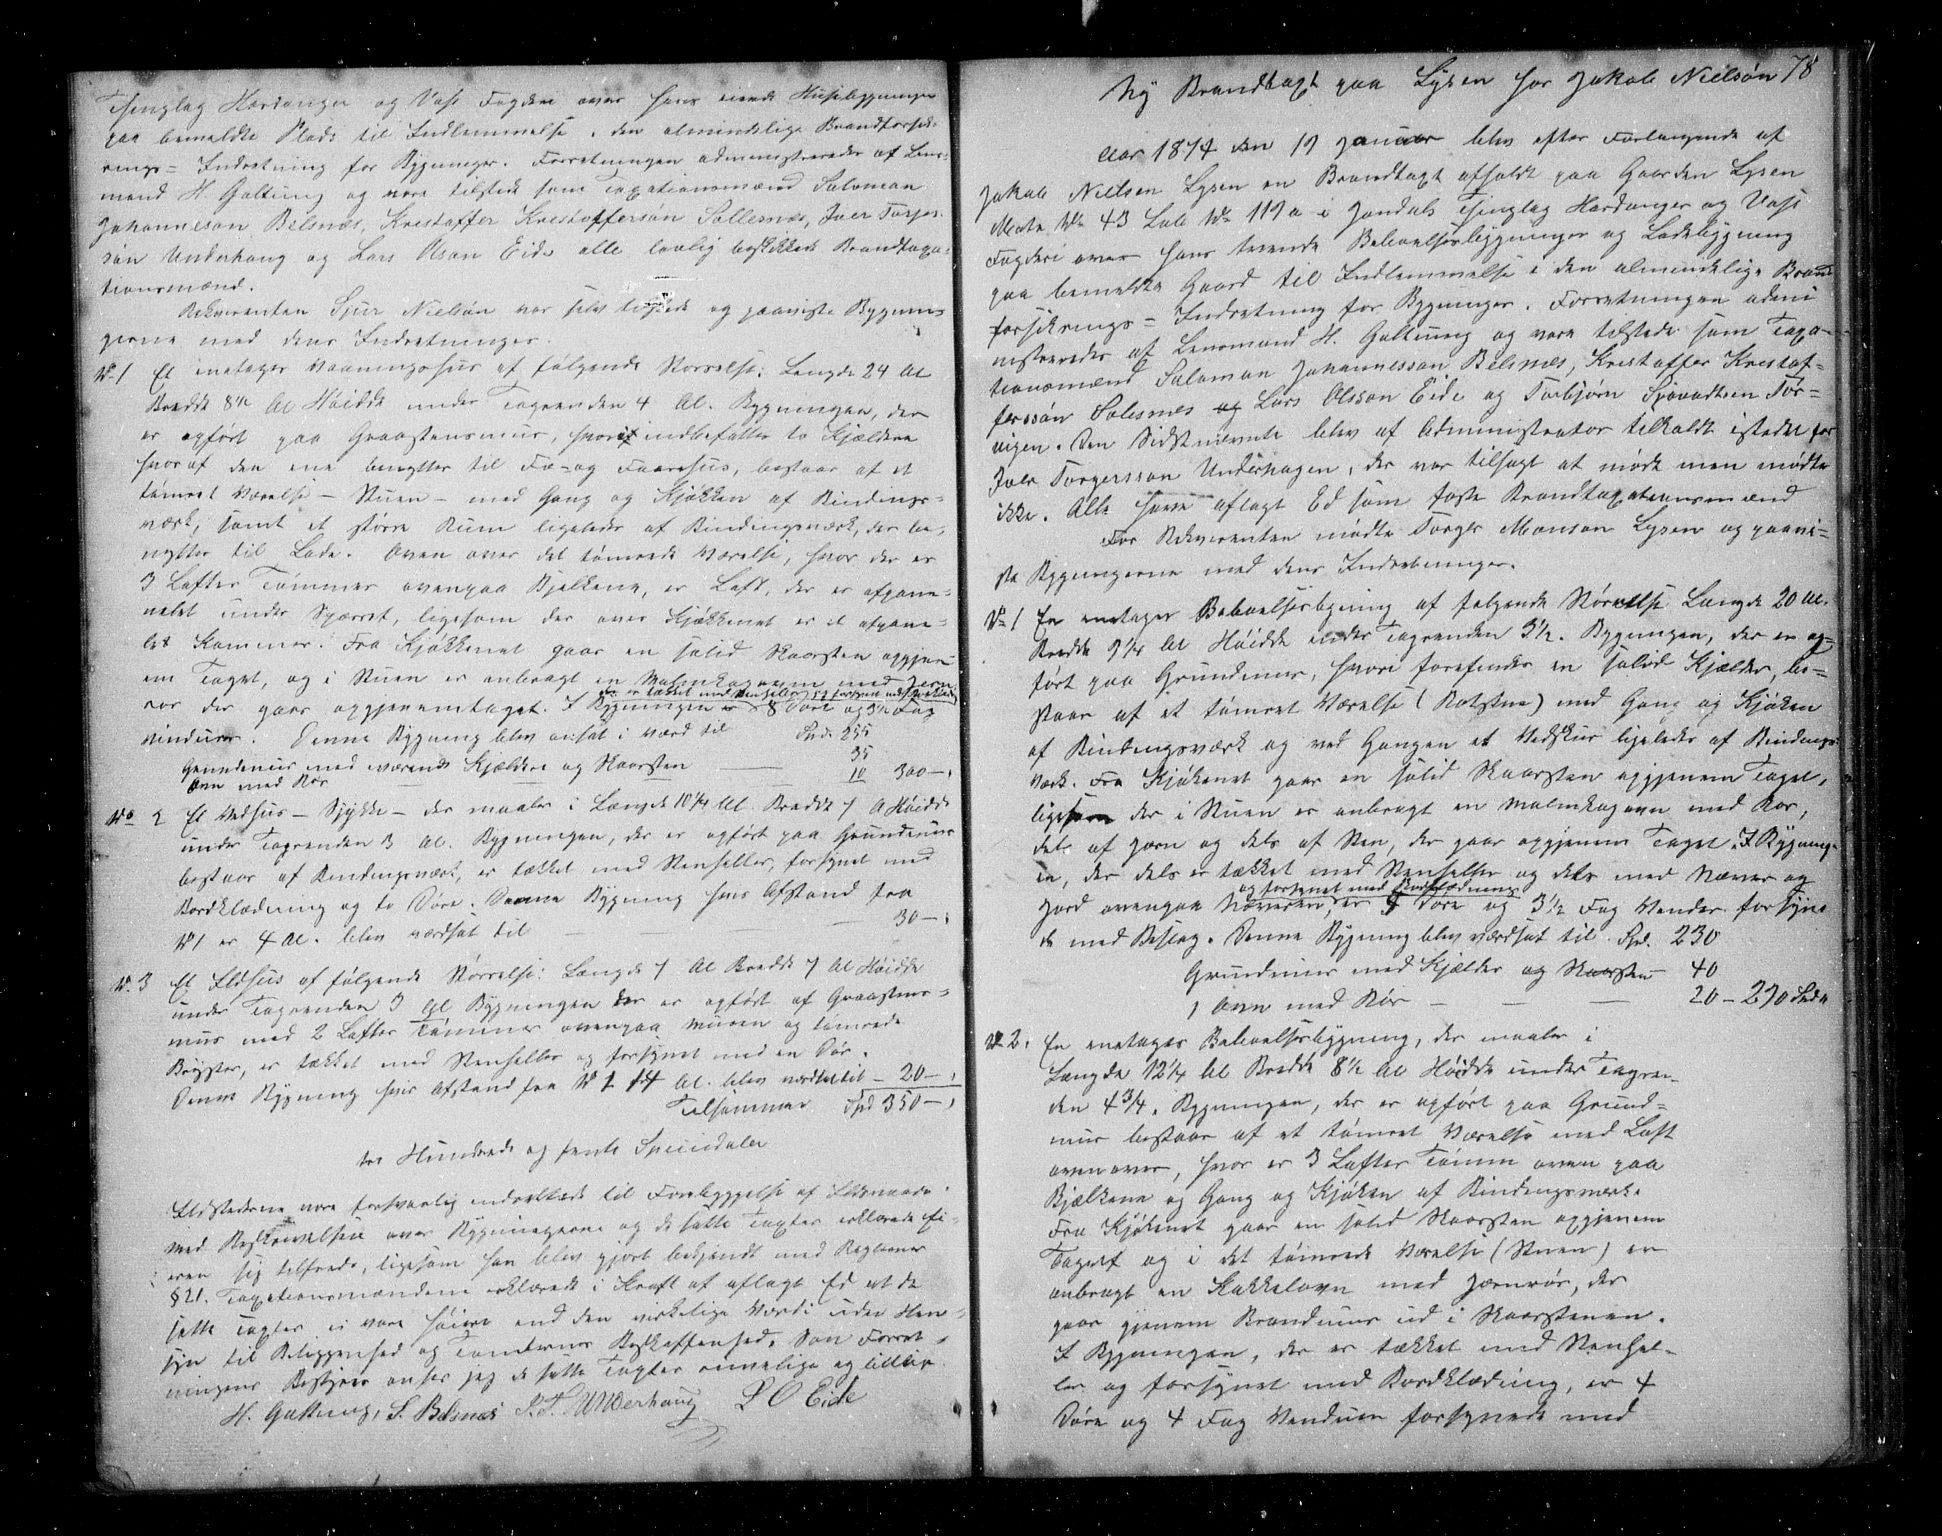 Thinglag Hardanger og Vos Fogderi over hans eiende Husebygninger
paa bemeldte Plads til Indlemmelse i den almindelige Brandforsik-
rings-Indretning for Bygninger. Forretningen administreredes af Lens-
mand H. Galtung og vare tilstede som Taxationsmænd Salomon
Johanneson Belsnæs, Krestoffer Krestoffersøn Sollesnæs, Iver Torjer-
søn Underhaug og Lars Olson Eide alle lovlig beskikkede Brandtaxa-
tionsmænd.
Rekvirenten Sjur Nielsøn var selv tilstede og paaviste Bygnin-
gerne med dens Indretninger.
No 1 Et enetages Vaaningshus af følgende Størrelse: Længde 24 Al
Bredde 8 1/2 Al Høidde under Tagrenden 4 Al. Bygningen, der
er opført paa Graastensmur, hvori indbefattes to Kjældere
hvoraf den ene benyttes til Fæ- og Faarehus, bestaar af et
tømret Værelse – Stuen – med Gang og Kjøkken af Bindings-
værk, samt et større Rum ligeledes af Bindingsværk, der be-
nyttes til Lade. Oven over det tømrede Værelse, hvor der er
3 Lafter Tømmer ovenpaa Bjelkene, er Loft, der er afpane-
nelet under Spærret, ligesom der over Kjøkkenet er et afpane-
let Kammer. Fra Kjøkkenet gaar en solid Skorsten opgjen-
em Taget, og i Stuen er anbragt en Malmkagovn med Jern
rør der gaar opgjennem taget. I Bygningen er 8 Døre og 3 1/2 Fag
der er tækket med Stenheller og forsynet med Bordklædn
Vinduer. Denne Bygning blev ansat i værd til Spd. 255
Grundmur med værende Kjældere og Skorsten — 35
Ovn med Rør — 10 300 – "
No 2 Et Vedhus – Skykke – der maaler i Længde 10 1/4 Al. Bredde 7 Al Høidde
under Tagrenden 3 Al. Bygningen, der er opført paa Grundmur
bestaar af Bindingsværk, er tækket med Stenheller, forsynet med
Bordklædning og to Døre. Denne Bygning hvis Afstand fra
No 1 er 4 Al. blev værdsat til — 30 – "
No 3 Et Ildhus af følgende Størrelse: Længde 7 Al Bredde 7 Al Høidde
under Tagrenden 3 Al Bygningen der er opført af Graastens-
mur med 2 Lafter Tømmer ovenpaa Muren og tømrede
Bryster, er tækket med Stenheller og forsynet med en Dør.
Denne Bygning hvis Afstand fra No 1 14 Al. blev værdsat til – 20 – "
Tilsammen Spd 350 – "
tre Hundrede og femti Speciedaler
Ildstederne vare forsvarlig indrettede til Forebyggelse af Ildsvaade.
Med Beskrivelsen over Bygningerne og de satte Taxter erklærede Ei-
eren sig tilfreds, ligesom han blev gjort bekjendt med Reglerne
§ 21. Taxationsmændene erklærede i Kraft af aflagt Ed at de
satte Taxter ei vare høiere end den virkelige Værdi uden Hen-
syn til Beliggenhed og Tomternes Beskaffenhed. Som Forret-
ningens Bestyrer anser jeg de satte Taxter rimelige og billige.
H. Galtung, S. Belsnæs I. T. Underhaug L O Eide
78
Ny Brandtaxt paa Lysen for Jakob Nielsøn
Aar 1874 den 19 Januar blev efter Forlangende af
Jakob Nielsen Lysen en Brandtaxt afholdt paa Gaarden Lysen
Matr. No 43 Løb No 119a i Jondals Thinglag Hardanger og Vos
Fogderi over hans tvende Beboelsesbygninger og Ladebygning
paa bemeldte Gaard til Indlemmelse i den almindelige Brand
forsikrings-Indretning for Bygninger. Forretningen admi-
nistreredes af Lensmand H. Galtung og vare tilstede som Taxa-
tionsmænd Salomon Johannesson Belsnæs, Kristoffer Krestof-
ferssøn Solesnes og Lars Olsson Eide og Torbjørn Sjovadtsen Tør-
vigen. Den Sidstnævnte blev af Administrator tilkaldt istedet for
Iver Torgersson Underhagen, der var tilsagt at møde men mødte
ikke. Alle have aflagt Ed som faste Brandtaxationsmænd
For Rekvirenten mødte Torger Monson Lysen og paavi-
ste Bygningerne med dens Indretninger.
No 1 En enetages Beboelsesbgning af følgende Størrelse Længde 20 Al.
Bredde 9 1/4 Al Høidde under Tagrenden 3 1/2. Bygningen, der er op-
ført paa Grundmur, hvori forefindes en solid Kjælder, be-
staar af et tømret Værelse (Rotstue) med Gang og Kjøken
af Bindingsværk og ved Gangen et Vedskur ligeledes af Bindings-
værk. Fra Kjøkenet gaar en solid Skorsten opgjenem Taget,
ligesom der i Stuen er anbragt en Malmkagovn med Rør,
dels af Jern og dels af Sten, der gaar opgjenem Taget. I Bygning-
en, der dels er tækket med Stenheller og dels med Næver og
og forsynet med Bordklædning
Jord ovenpaa Næveren, er 4 Døre og 3 1/2 Fag Vinduer forsyne
de med Beslag. Denne Bygning blev værdsat til Spd. 230
Grundmur med Kjælder og Skorsten – 40
1 Ovn med Rør — 20 – 290 Spd "
No 2. En enetages Beboelsesbygning, der maaler i
Længde 12 1/4 Al Bredde 8 1/2 Al Høidde under Tagren-
den 4 3/4. Bygningen, der er opført paa Grund-
mur bestaar af et tømret Værelse med Loft
ovenover, hvor er 3 Lafter Tømm oven paa
Bjælkene og Gang og Kjøken af Bindingsværk.
Fra Kjøkenet gaar en solid Skorsten opgjenem
Taget og i det tømrede Værelse (Stuen) er
anbragt en Kakkelovn med Jærnrør, der
gaar gjenem Brandmur ud i Skorstenen.
I Bygningen, der er tækket med Stenhel-
ler og forsynet med Bordklædning, er 4
Døre og 4 Fag Vinduer forsynede med